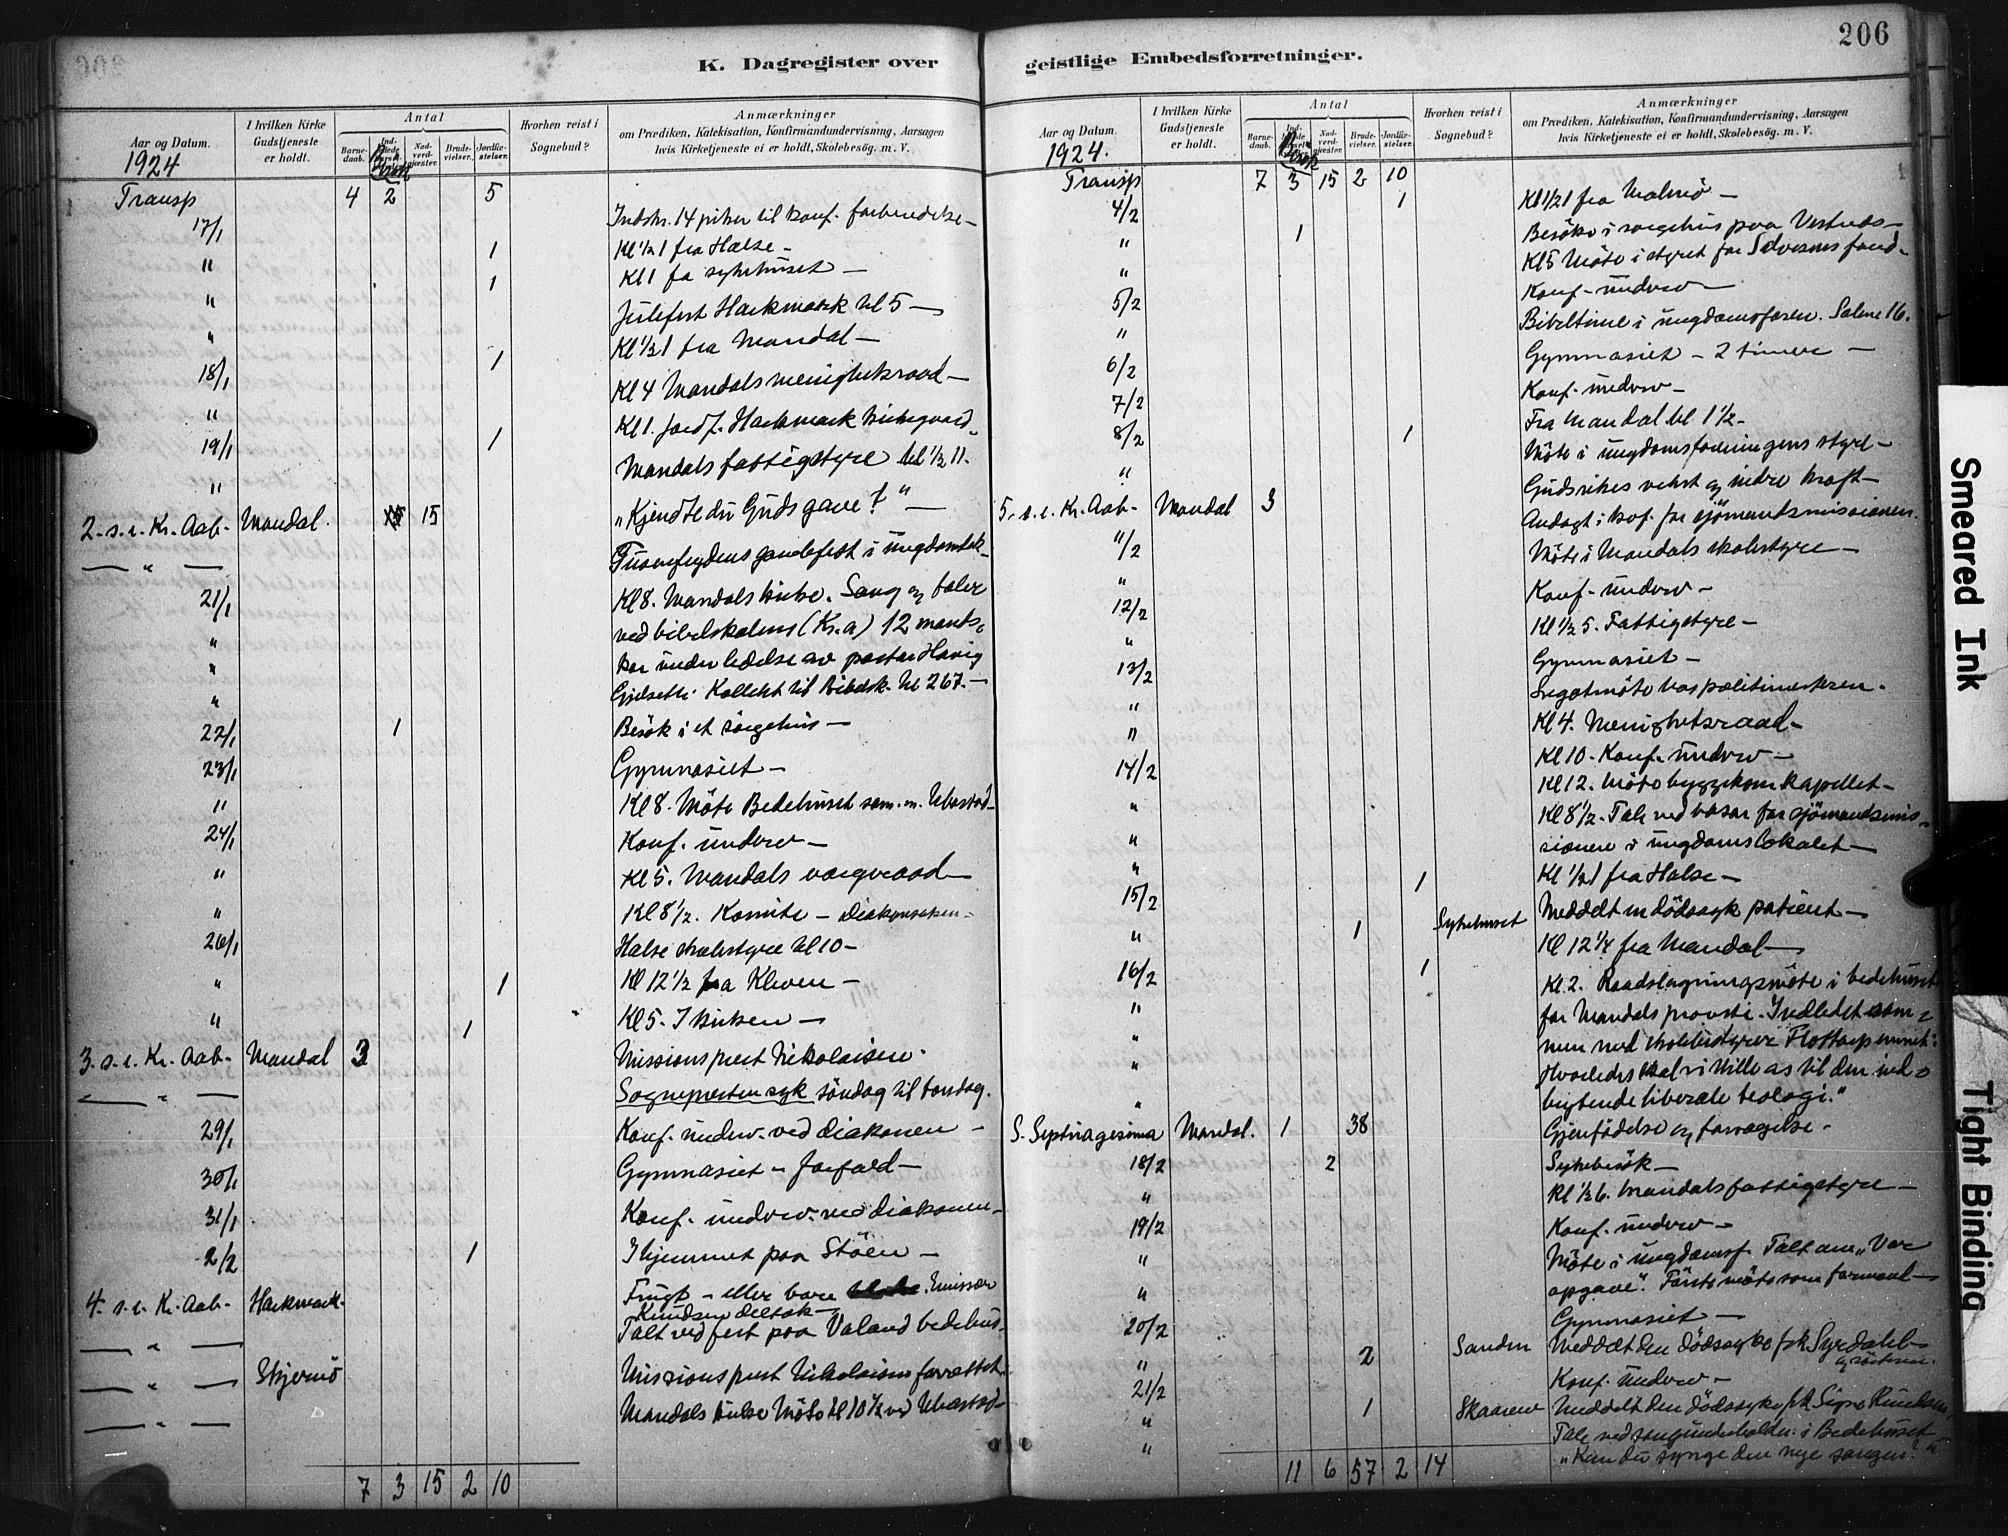 206
K. Dagregister over geistlige Embedsforretninger.
Aar og Datum. I hvilken Kirke Gudstjeneste er holdt. Antal Hvorhen reist i Sognebud? Anmærkninger
om Prædiken, Katekisation, Konfirmandundervisning, Aarsagen
hvis Kirketjeneste ei er holdt, Skolebesøg. m. V.
Barnedaab. Nadverdgjester. Brudevielser. Jordfæstelser.
1924
Transp 4 2 5
17/1 Indskr. 14 piker til konf. forberedelse -
" 1 Kl 1/2 1 fra Halse -
" 1 Kl 1 fa sykehuset -
" Julefest Harkmark kl 5 -
18/1 1 Kl 1/2 1 fra Mandal -
" Kl 4 Mandals menighetsraad -
19/1 1 Kl 1. Jordf. Harkmark Kirkegaard.
" Mandals fattigstyre kl 1/2 11.
2. s. e. Kr. Aab - Mandal. 15 "Kjendte du Guds gave?" -
— " — gamlefest i ungdomslok -
21/1 Kl 8. Mandals kirke. Sang og taler
" ved bibelskolens (Kr.a) 12 mands-
" kor under ledelse av pastor Høvig
" Kollekt til Bibelsk. kr 267. -
22/1 1 Besök i et sörgehus -
23/1 Gymnasiet -
" Kl 8. Möte Bedehuset
24/1 Konf. underv -
" Kl 5. Mandals vergeraad -
" Kl 8 1/2. Komite -
26/1 Halse skolestyre kl 10 -
" 1 Kl 12 1/2 fra Kleven -
" 1 Kl 5. I kirken -
3. s. e. Kr. Aab - Mandal 3 Missionsprest Nikolaisen.
— " — Sognepresten syk söndag til torsdag.
29/1 Konf. underv. ved diakonen -
30/1 Gymnasiet - forfald -
31/1 Konf. underv. ved diakonen -
2/2 1 I hjemmet paa Stöen -
4. s. e. Kr. Aab - Harkmark. Frugt - eller bare Emissær
Knudsen deltok -
— " — Talt ved fest paa Valand bedehus -
— " — Skjernö Missionsprest Nikolaisen forrettet.
— " — Mandals kirke Möte kl 10 1/2 ved
7 3 15 2 10
Aar og Datum. I hvilken Kirke Gudstjeneste er holdt. Antal Hvorhen reist i Sognebud? Anmærkninger
om Prædiken, Katekisation, Konfirmandundervisning, Aarsagen
hvis Kirketjeneste ei er holdt, Skolebesøg. m. V.
Barnedaab. Nadverdgjester. Brudevielser. Jordfæstelser.
1924.
Transp 7 3 15 2 10
4/2 1 Kl 1/2 1 fra Malmö -
" 1 Besök i sörgehus paa Vestnes -
" Kl 5 Möte i styret for fond -
5/2 Konf - underv -
" Bibeltime i ungdomsforen. Salme 16.
6/2 Gymnasiet - 2 timer -
7/2 Konf. underv -
8/2 1 Fra Mandal kl 1 1/2 -
" Möte i ungdomsforeningens styre -
5. s. e. Kr. Aab - Mandal 3 Gudsrikes vekst og indre kraft -
Andagt i for sjömandsmissionen.
11/2 Möte i Mandals skolestyre -
" Konf. underv -
12/2 Kl 1/2 5. Fattigstyre -
" Gymnasiet -
13/2 Legatmöte hos politimesteren.
" Kl 4. Menighetsraad -
" Kl 10. Konf. underv -
14/2 Kl 12. Möte byggekom kapellet -
" Kl 8 1/2. Tale ved basar for sjömandsmis-
" sionen i ungdomslokalet -
" 1 Kl 1/2 1 fra Halse -
15/2 1 Sykehuset Meddelt en dödssyk patient -
" 1 Kl 12 1/4 fra Mandal -
16/2 Kl 2. Raadslagningsmöte i bedehuset
" for Mandals provsti. Indledet
" skolebestyrer Flottorp emnet:
" Hvorledes skal vi stille os til den ind-
" brytende liberale teologi."
S. Septuagesima Mandal. 1 38 Gjenfödelse og fornyelse -
18/2 2 Sykebesök -
" Kl 1/2 6. Mandals fattigstyre -
19/2 Konf. underv -
" Möte i ungdomsf. Talt om "Vor
" opgave". Förste möte som formand -
20/2 Gymnasiet -
" 2 Sanden Meddelt den dödssyke frk Syrdahl -
og söster.
21/2 Konf. underv -
" 1 Skaaren Meddelt den dödssyke
" Tale ved i Bedehuset
"Kan du synge den nye sangen?"
11 6 57 2 14
Smeared Ink
Tight Binding